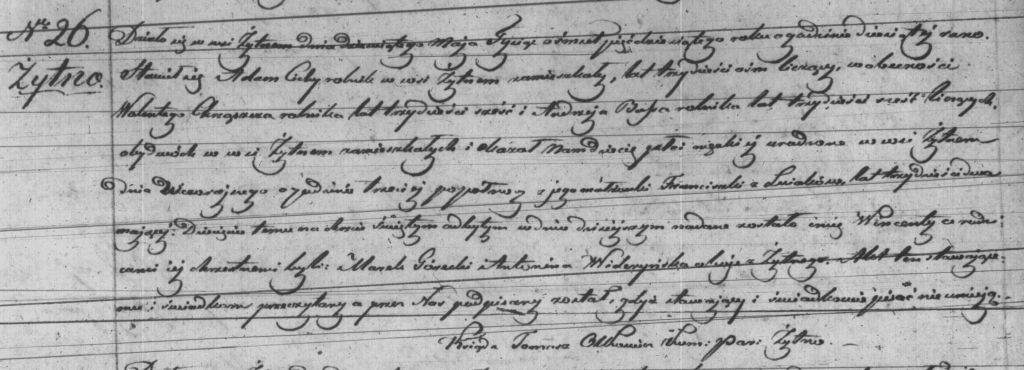 Nr 26.
Żytno.
Działo się w wsi Żytnem dnia dziewiątego Maja Tysiąc ośmset pięćdziesiątego roku o godzinie dziesiątej rano.
Stawił się Adam Ciby rolnik w wsi Żytnem zamieszkały, lat trzydzieści ośm liczący, w obecności
Walentego Chrząszcza rolnika lat trzydzieści sześć i Andrzeja rolnika lat trzydzieści sześć liczących,
obydwóch w wsi Żytnem zamieszkałych i okazał Nam dziecię płci męzkiej urodzone w wsi Żytnem
dnia Wczorajszego o godzinie trzeciej popołudniu z jego małżonki Franciszki z lat trzydzieści dwa
mającej. Dziecięciu temu na chrzcie świętym odbytym w dniu dzisiejszym nadane zostało imię Wincenty a rodzi:
cami jej chrzestnemi byli: Marek Górecki i Antonina oboje z Żytnego. Akt ten stawające:
mu i świadkom przeczytany a przez Nas podpisany został, gdyż stawający i świadkowie pisać nie umieją.
Xiądz Tomasz par: Żytno.